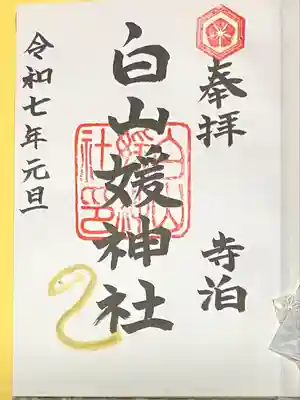 奉拝
寺泊
白山媛神社
白山媛神社印
令和七年元旦